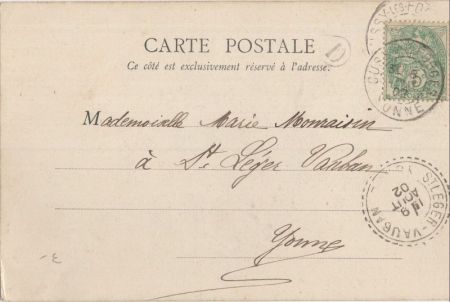 CARTE POSTALE
D
Ce côté est exclusivement réservé à l'adresse.
5
YONNE
Mademoiselle Marie Monraisin
à St Léger Vauban
Yonne
ST LEGER-VAUBAN
19
AOUT
02
3